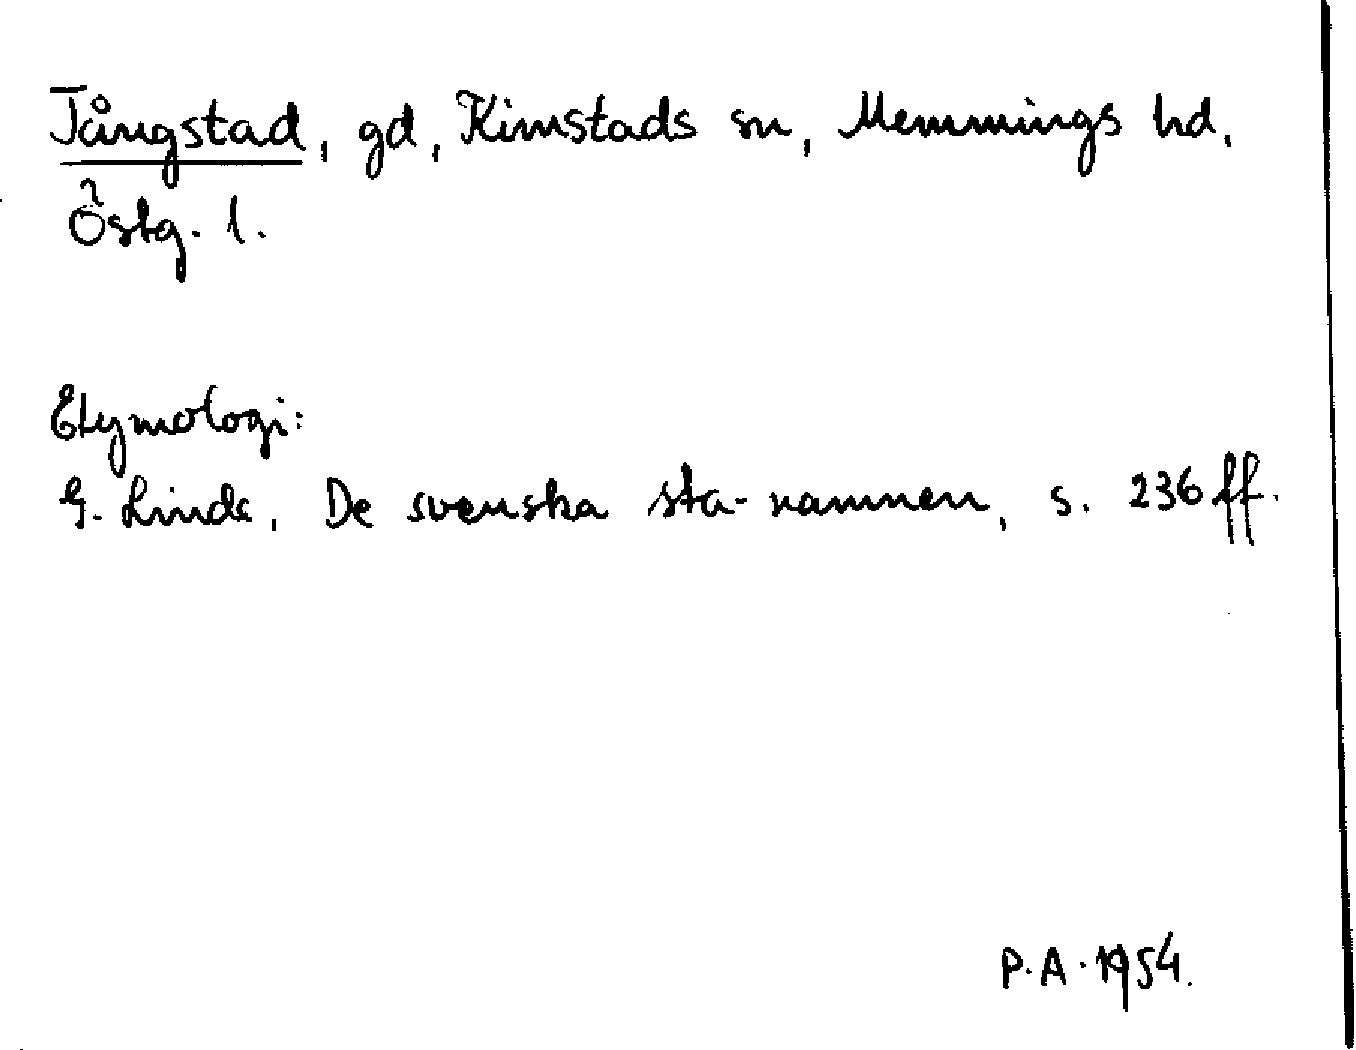 Tångstad, gd, Kimstads sn, Memmings hd,
Östg. l.
Etymologi:
G. Linde, De svenska sta-namnen, s. 236 ff.
P.A. 1954.